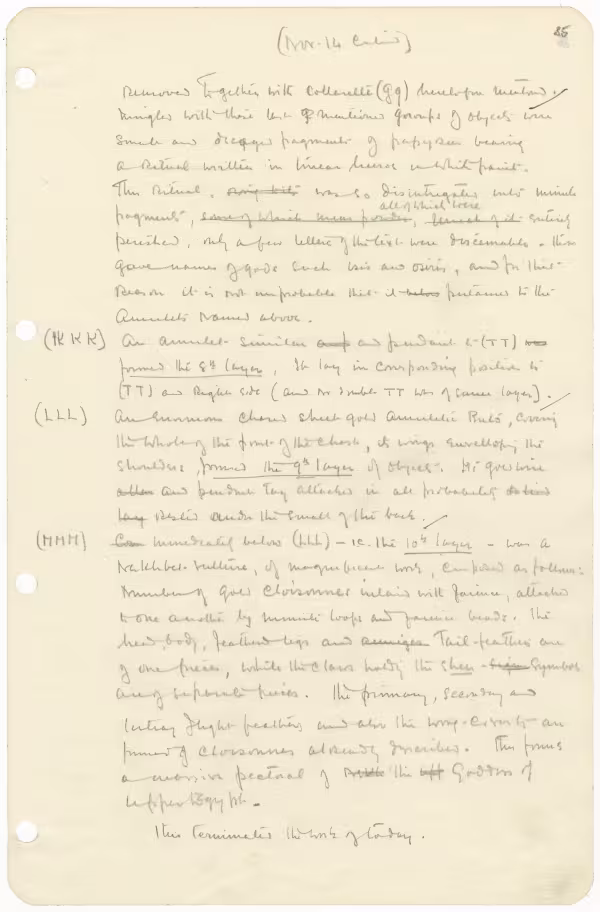 25
(Nov. 14 Contind)
removed together with collarette (GG) heretofore mentiond.
Mingled with those last mentioned groups of objects were
small and decayed fragments of papyrus bearing
a Ritual written in linear hieros in white paint.
This Ritual, was so disintegrated into minute
all of which were
fragments, some of which mere powder, much of it entirely
perished, only a few letters of the text were discernable. these
gave names of gods such Isis and Osiris, and for that
reason it is not improbable that it pertained to the
Amulets named above.
(KKK) An amulet similar and and pendant to (TT) was
formed the 8th layer, It lay in corresponding position to
(TT) on Right side (and no doubt TT was of same layer).
(LLL) An enormous chased sheet gold Amuletic Ba, covering
the whole of the front of the chest, its wings enveloping the
shoulders, formed the 9th layer of objects. Its gold wire
and pendant tag attached in all probability
lay Rested under the small of the back.
(MMM) immediately below (LLL) - i.e. the 10th layer - was a
Nekhbet-vulture, of magnificent work, composed as follows:
Number of gold cloisonnes inlaid with faience, attached
to one another by minute loops and faience beads. The
head, body, feathered legs and Tail-feathers are
of one piece, while the claws holding the shen - sign symbol
are of separate pieces. The primary, secondary and
tertiary flight feathers and also the wing-coverts are
formed of cloisonnes already described. This forms
a massive pectoral of the Goddess of
Upper Egypt.
This terminates the work of today.